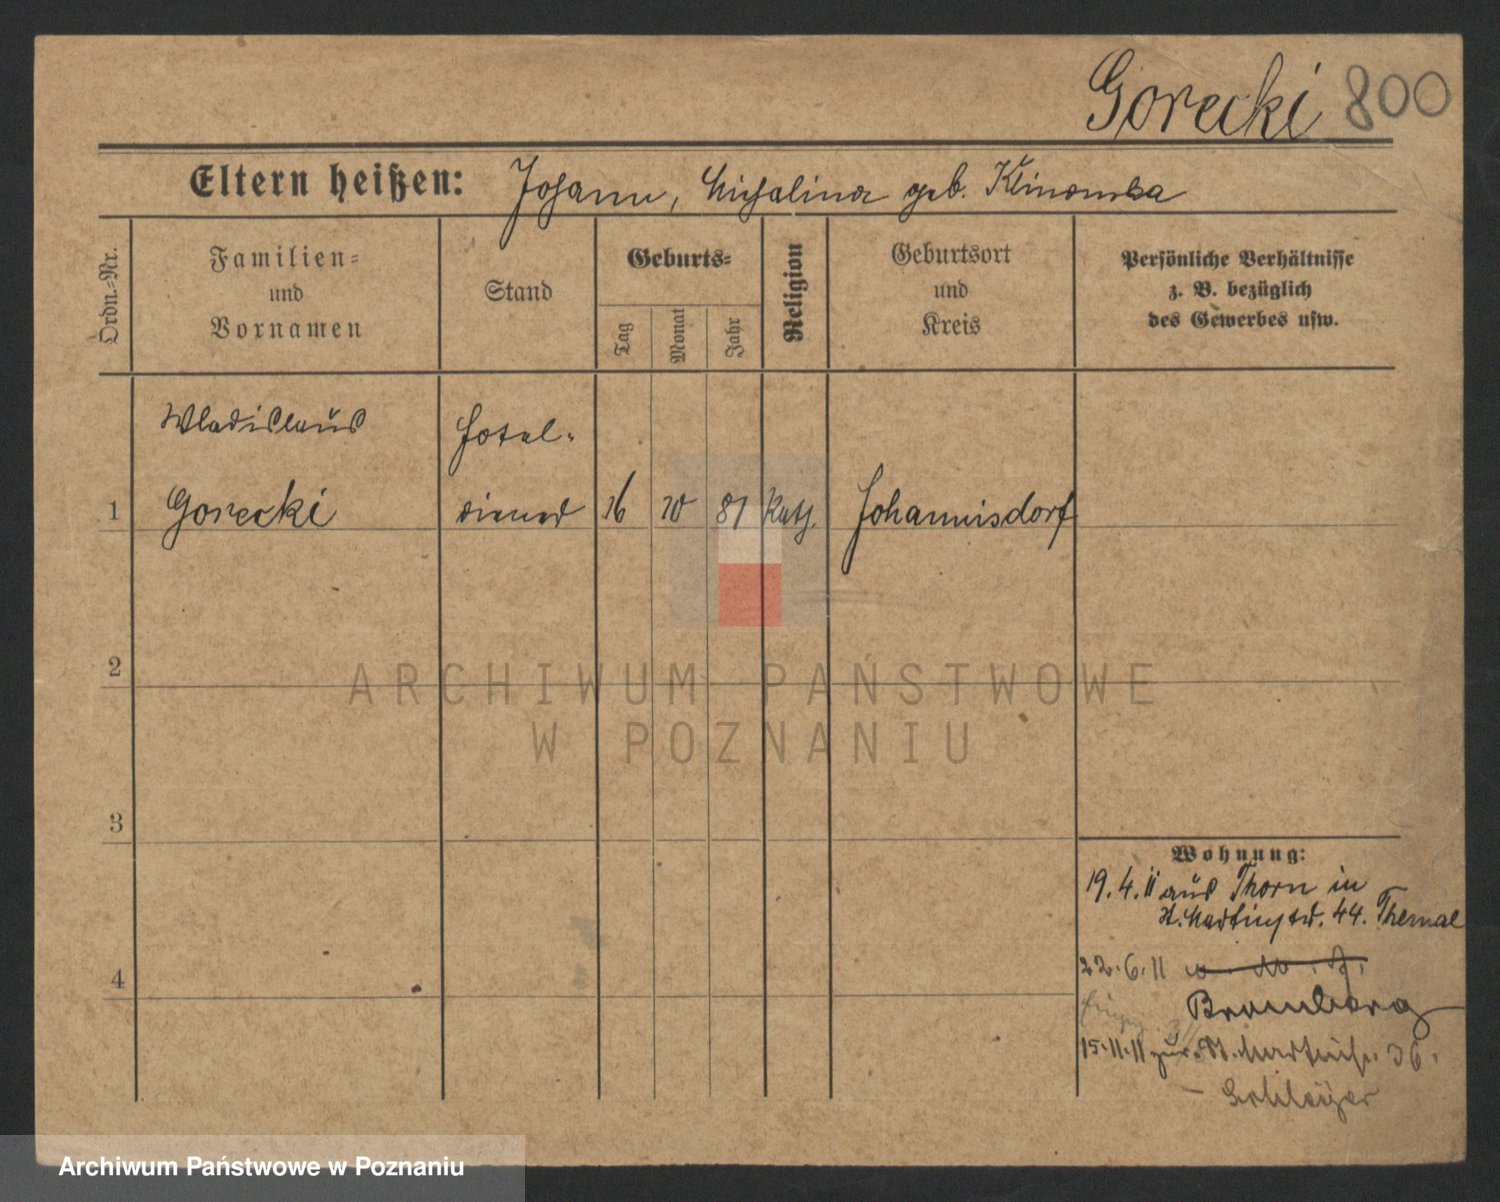 Gorecki 800
Eltern heißen: Johann, Michalina geb. Klinowska
Ordn.-Nr.
Familien-
und
Vornamen
Stand
Geburts-
Tag
Monat
Jahr
Religion
Geburtsort
und
Kreis
Persönliche Verhältnisse
z. B. bezüglich
des Gewerbes usw.
Wladislaus Hotel-
1 Gorecki diener 16 10 81 Kath. Johannisdorf
2
ARCHIWUM PAŃSTWOWE
W POZNANIU
3
Wohnung:
19.4.11 aus Thorn in
St. Martinstr. 44. Themal
4
22.6.11
Bromberg
15.11.11 zur. St. Martinstr. 36.
Archiwum Państwowe w Poznaniu